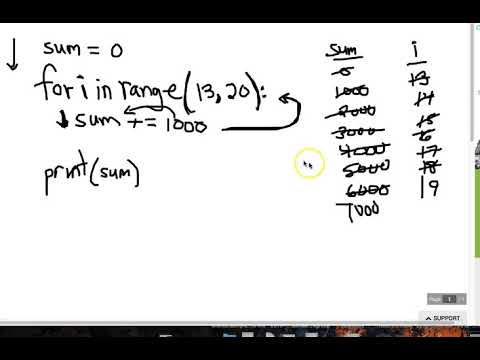 sum = 0
for i in range(13,20):
sum += 1000
print(sum)
sum i
0 13
1000 14
2000 15
3000 16
4000 17
5000 18
6000 19
7000
Page 1
SUPPORT